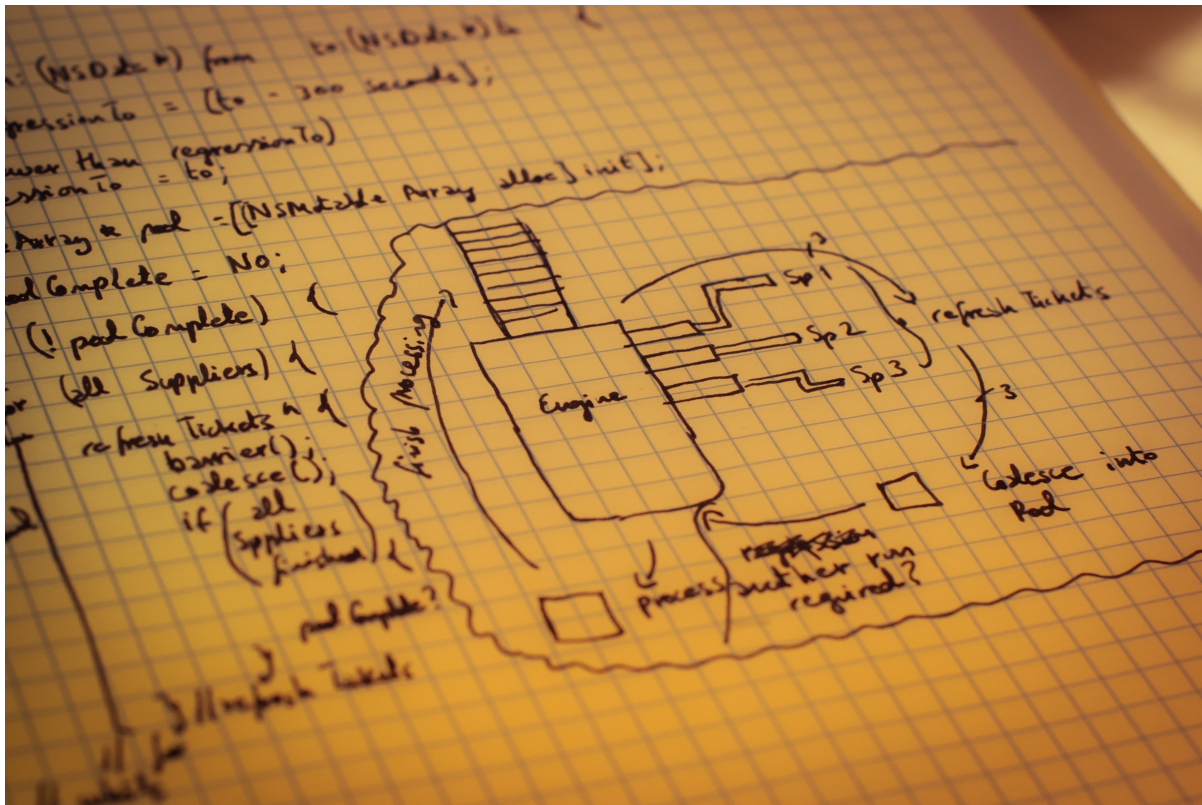 : (NSDate *) from to: (NSDate *) to {
gressionTo = [to - 300 seconds];
ower than regressionTo)
essionTo = to;
Array * pool = [[NSMutable Array alloc] init];
pool Complete = NO;
(! pool Complete) {
or (all Suppliers) {
refresh Tickets ^ {
barrier();
coalesce();
if (all
Suppliers
finished) {
pool Complete?
}
} // refresh Tickets
// for
// while
finish processing
Engine
Sp 1
Sp 2
Sp 3
3
refresh Tickets
3
Coalesce into
Pool
another run
required?
process